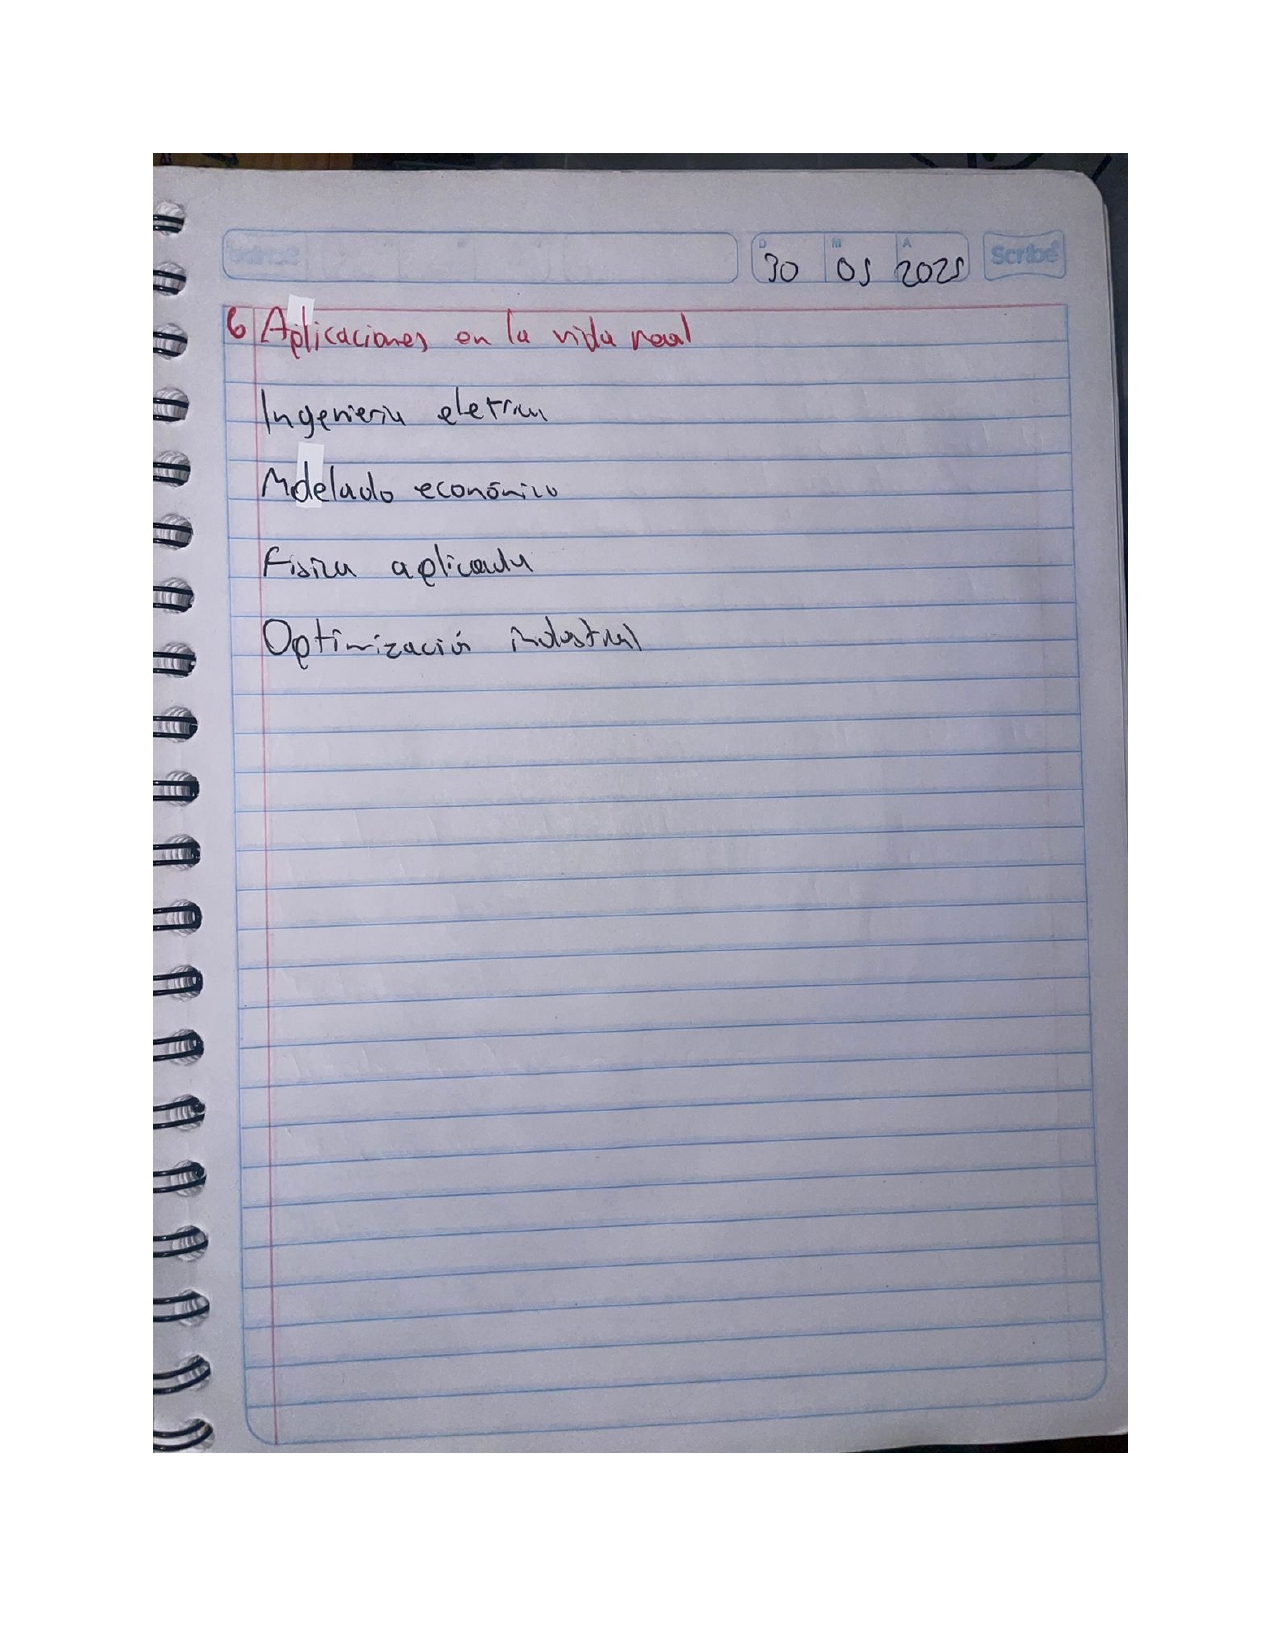 D M A
30 05 2025 Scribe
6 Aplicaciones en la vida real
Ingenieria eletrica
Mdelado económico
Fisica aplicada
Optimización industrial